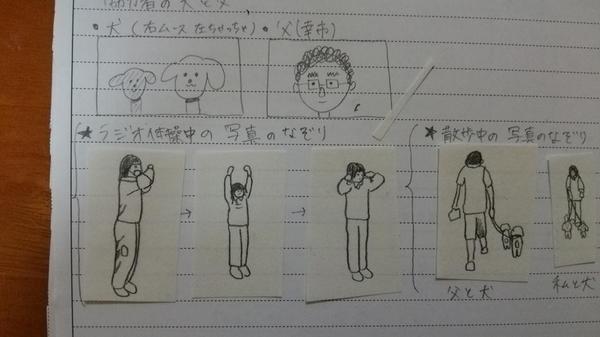 協力者の犬と父
・犬(右ムース 左ちゃっちゃ)・父(幸市)
★ラジオ体操中の写真のなぞり
★散歩中の写真のなぞり
→
→
父と犬
私と犬